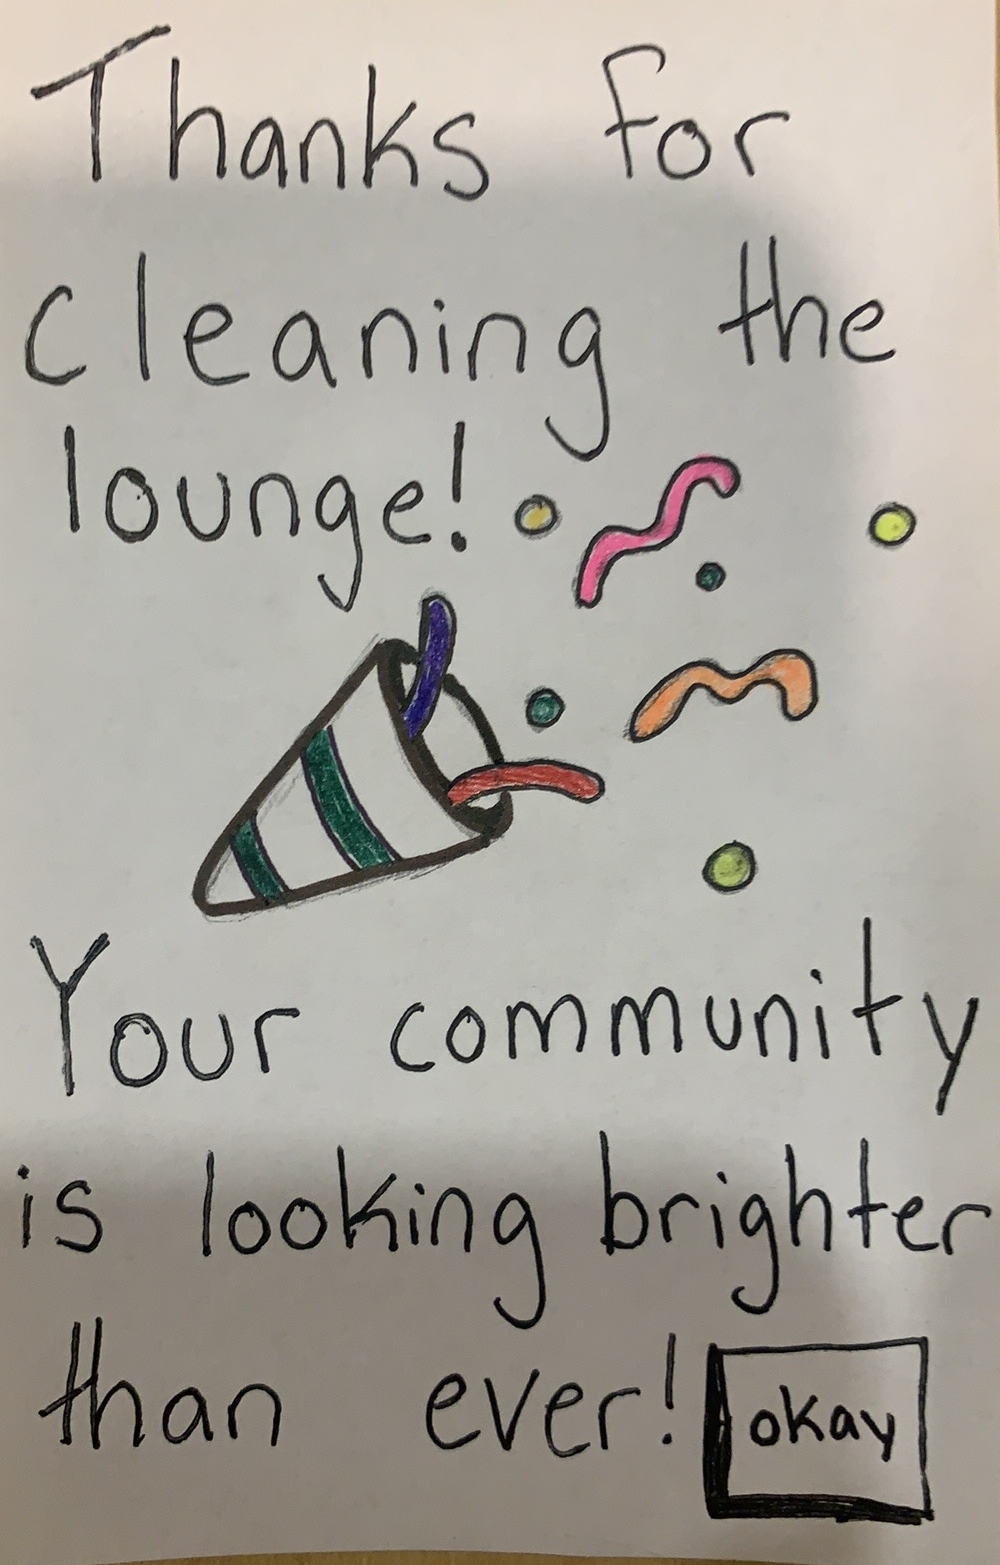 Thanks for
cleaning the
lounge!
Your community
is looking brighter
than ever!
okay